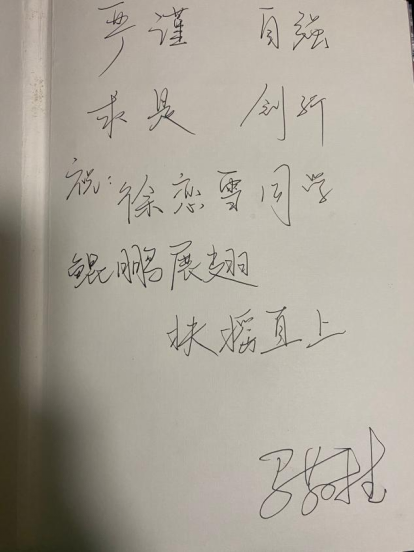 严谨 自强
求是 创新
祝：徐恋雪同学
鲲鹏展翅
扶摇直上